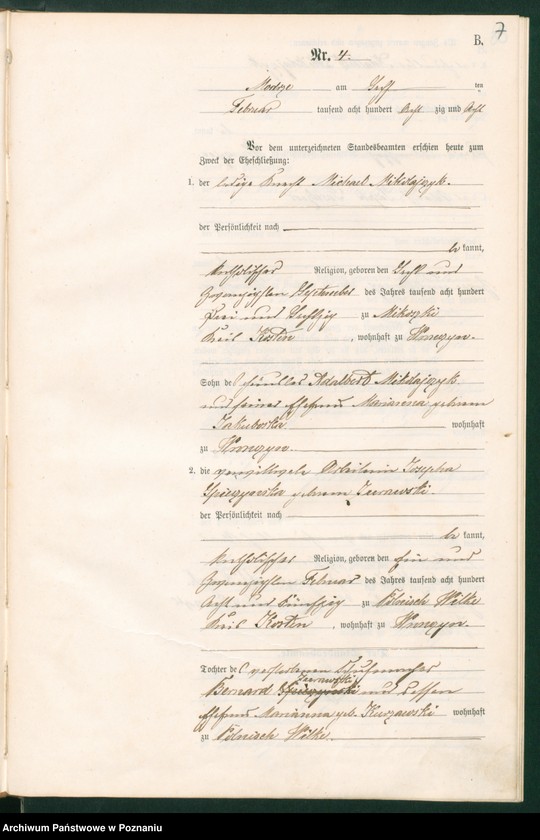 7
B.
Nr. 4.
am ten
Februar tausend acht hundert Acht zig und Acht
Vor dem unterzeichneten Standesbeamten erschien heute zum
Zweck der Eheschließung:
1. der ledige Knecht Michael Mikołajczyk.
der Persönlichkeit nach
be kannt,
katholischer Religion, geboren den Sechs und
zwanzigsten September des Jahres tausend acht hundert
drei und Sechzig zu
Kreis Kosten, wohnhaft zu
Sohn des Adalbert Mikołajczyk
und seiner Ehefrau Marianna geborene
wohnhaft
zu
2. die verwittwete Arbeiterin Josepha
geborene
der Persönlichkeit nach
be kannt,
katholischer Religion, geboren den ein und
zwanzigsten Februar des Jahres tausend acht hundert
Acht und Fünfzig zu Polnisch Wilke
Kreis Kosten, wohnhaft zu
Tochter des verstorbenen
Bernard und dessen
Ehefrau Marianna geb. Kurzawski wohnhaft
zu Polnisch Wilke.
Archiwum Państwowe w Poznaniu